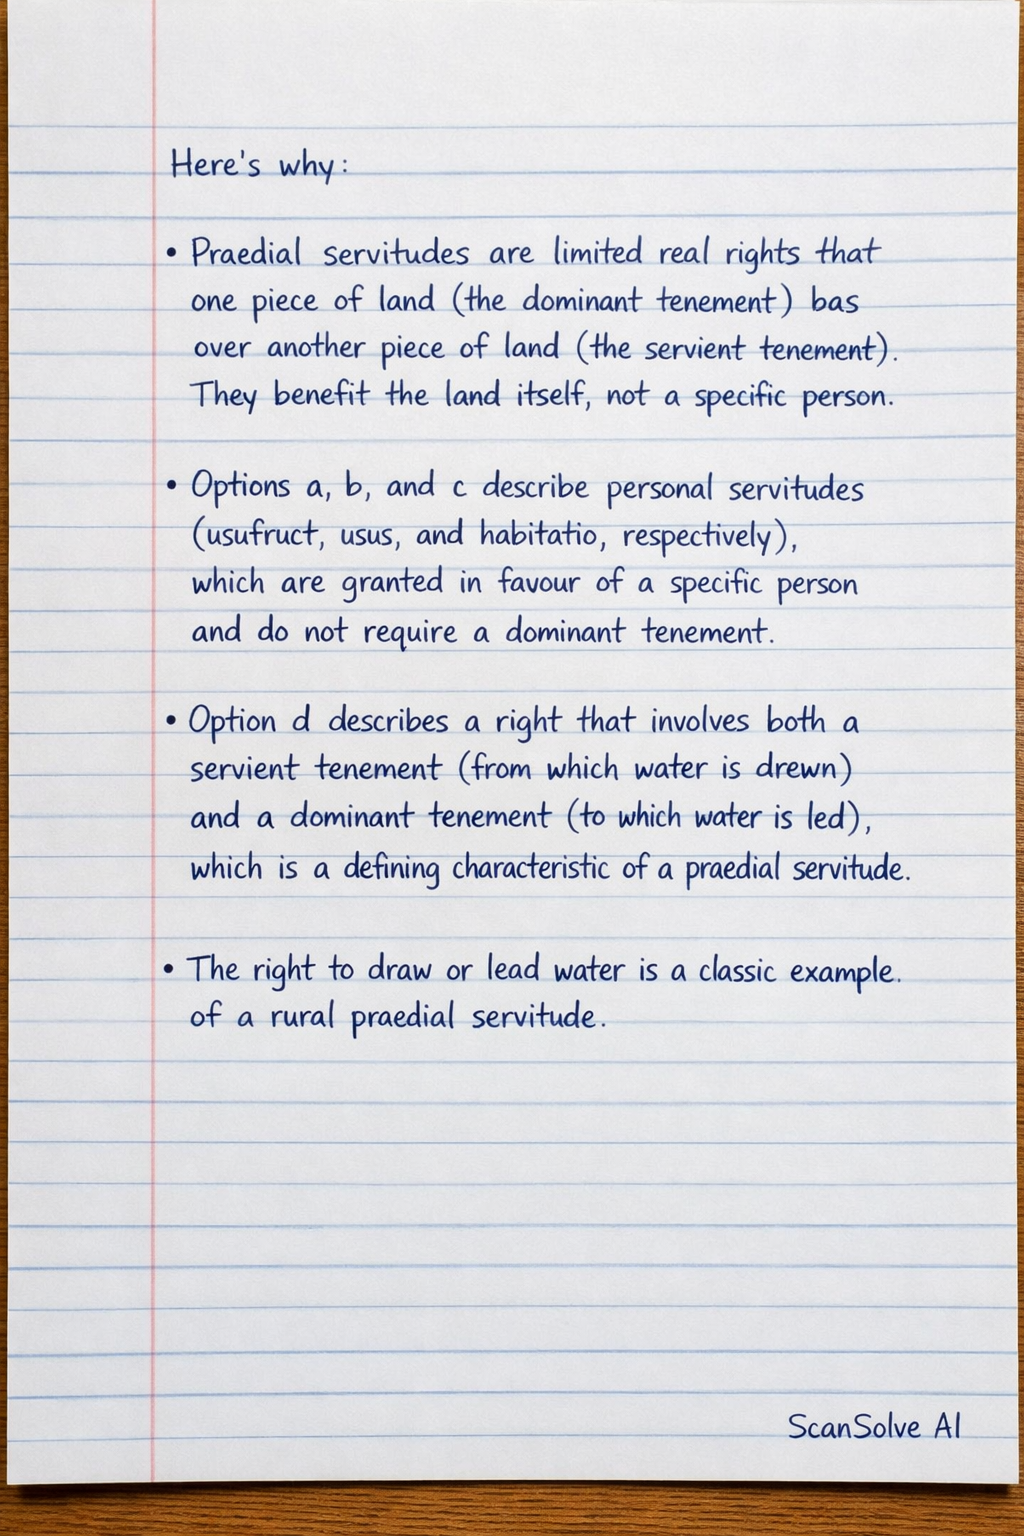 Here's why:
• Praedial servitudes are limited real rights that
one piece of land (the dominant tenement) bas
over another piece of land (the servient tenement).
They benefit the land itself, not a specific person.
• Options a, b, and c describe personal servitudes
(usufruct, usus, and habitatio, respectively),
which are granted in favour of a specific person
and do not require a dominant tenement.
• Option d describes a right that involves both a
servient tenement (from which water is drewn)
and a dominant tenement (to which water is led),
which is a defining characteristic of a praedial servitude.
• The right to draw or lead water is a classic example.
of a rural praedial servitude.
ScanSolve AI